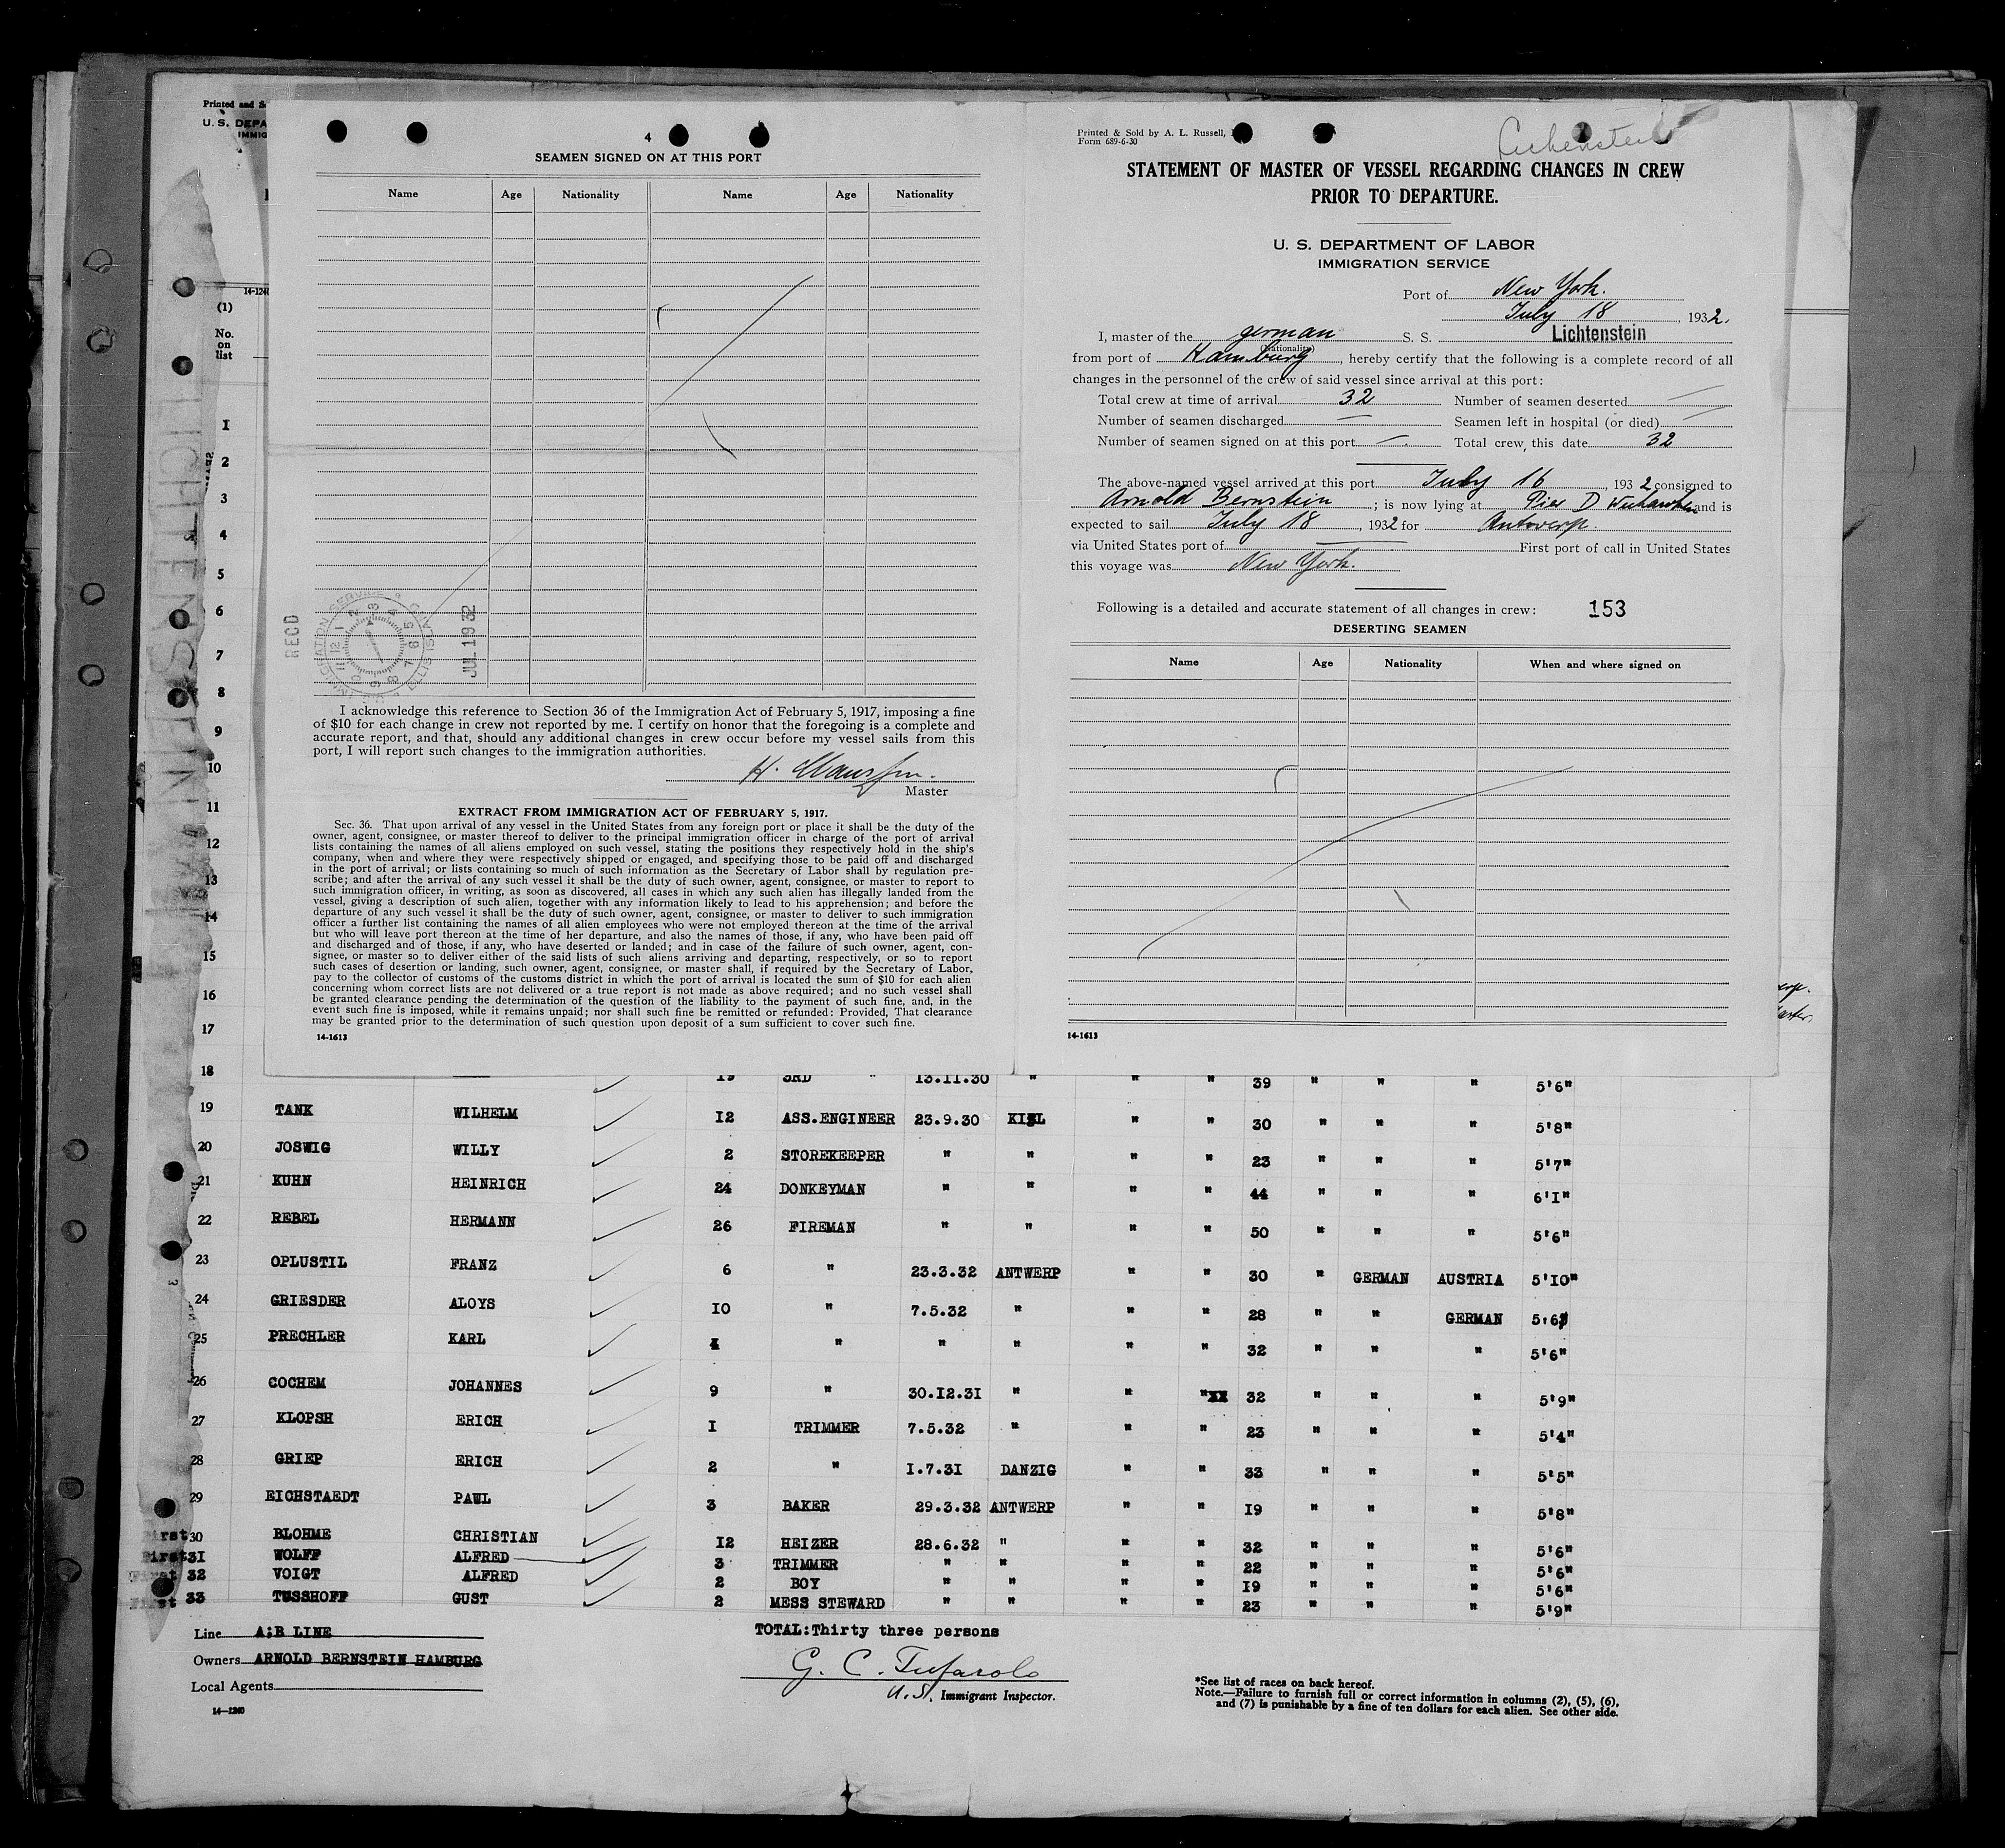 Printed and S
U. S. DEPA
IMMIG
14-1240
(1)
No.
on
list
1
2
3
4
5
6
7
8
9
10
11
12
13
14
15
16
17
LICHTENSTEIN
4
SEAMEN SIGNED ON AT THIS PORT
Name Age Nationality Name Age Nationality
RECD
IMMIGRATION SERVICE ELLIS ISLAND
JUL 19 32
I acknowledge this reference to Section 36 of the Immigration Act of February 5, 1917, imposing a fine
of $10 for each change in crew not reported by me. I certify on honor that the foregoing is a complete and
accurate report, and that, should any additional changes in crew occur before my vessel sails from this
port, I will report such changes to the immigration authorities.
H.
Master
EXTRACT FROM IMMIGRATION ACT OF FEBRUARY 5, 1917.
Sec. 36. That upon arrival of any vessel in the United States from any foreign port or place it shall be the duty of the
owner, agent, consignee, or master thereof to deliver to the principal immigration officer in charge of the port of arrival
lists containing the names of all aliens employed on such vessel, stating the positions they respectively hold in the ship's
company, when and where they were respectively shipped or engaged, and specifying those to be paid off and discharged
in the port of arrival; or lists containing so much of such information as the Secretary of Labor shall by regulation pre-
scribe; and after the arrival of any such vessel it shall be the duty of such owner, agent, consignee, or master to report to
such immigration officer, in writing, as soon as discovered, all cases in which any such alien has illegally landed from the
vessel, giving a description of such alien, together with any information likely to lead to his apprehension; and before the
departure of any such vessel it shall be the duty of such owner, agent, consignee, or master to deliver to such immigration
officer a further list containing the names of all alien employees who were not employed thereon at the time of the arrival
but who will leave port thereon at the time of her departure, and also the names of those, if any, who have been paid off
and discharged and of those, if any, who have deserted or landed; and in case of the failure of such owner, agent, con-
signee, or master so to deliver either of the said lists of such aliens arriving and departing, respectively, or so to report
such cases of desertion or landing, such owner, agent, consignee, or master shall, if required by the Secretary of Labor,
pay to the collector of customs of the customs district in which the port of arrival is located the sum of $10 for each alien
concerning whom correct lists are not delivered or a true report is not made as above required; and no such vessel shall
be granted clearance pending the determination of the question of the liability to the payment of such fine, and, in the
event such fine is imposed, while it remains unpaid; nor shall such fine be remitted or refunded: Provided, That clearance
may be granted prior to the determination of such question upon deposit of a sum sufficient to cover such fine.
14-1613
Printed & Sold by A. L. Russell,
Form 689-6-30
Lichenstein
STATEMENT OF MASTER OF VESSEL REGARDING CHANGES IN CREW
PRIOR TO DEPARTURE.
U. S. DEPARTMENT OF LABOR
IMMIGRATION SERVICE
Port of New York.
July 18, 1932.
I, master of the german S. S. Lichtenstein
(Nationality)
from port of Hamburg, hereby certify that the following is a complete record of all
changes in the personnel of the crew of said vessel since arrival at this port:
Total crew at time of arrival 32 Number of seamen deserted —
Number of seamen discharged — Seamen left in hospital (or died) —
Number of seamen signed on at this port — Total crew, this date 32
The above-named vessel arrived at this port July 16, 1932 consigned to
Arnold Bernstein; is now lying at Pier D Weehawken and is
expected to sail July 18, 1932 for Antwerp.
via United States port of — First port of call in United States
this voyage was New York.
Following is a detailed and accurate statement of all changes in crew: 153
DESERTING SEAMEN
Name Age Nationality When and where signed on
14-1613
18 19 3RD " 13.11.30 " " " 39 " " " 5'6"
19 TANK WILHELM 12 ASS.ENGINEER 23.9.30 KIEL " " 30 " " " 5'8"
20 JOSWIG WILLY 2 STOREKEEPER " " " " 23 " " " 5'7"
21 KUHN HEINRICH 24 DONKEYMAN " " " " 44 " " " 6'1"
22 REBEL HERMANN 26 FIREMAN " " " " 50 " " " 5'6"
23 OPLUSTIL FRANZ 6 " 23.3.32 ANTWERP " " 30 " GERMAN AUSTRIA 5'10"
24 GRIESDER ALOYS 10 " 7.5.32 " " " 28 " " GERMAN 5'6"
25 PRECHLER KARL 4 " " " " " 32 " " " 5'6"
26 COCHEM JOHANNES 9 " 30.12.31 " " "XX 32 " " " 5'9"
27 KLOPSH ERICH 1 TRIMMER 7.5.32 " " " 23 " " " 5'4"
28 GRIEP ERICH 2 " 1.7.31 DANZIG " " 33 " " " 5'5"
29 EICHSTAEDT PAUL 3 BAKER 29.3.32 ANTWERP " " 19 " " " 5'8"
First 30 BLOHME CHRISTIAN 12 HEIZER 28.6.32 " " " 32 " " " 5'6"
First 31 WOLFF ALFRED 3 TRIMMER " " " " 22 " " " 5'6"
First 32 VOIGT ALFRED 2 BOY " " " " 19 " " " 5'6"
First 33 TUSSHOFF GUST 2 MESS STEWARD " " " " 23 " " " 5'9"
Line A;B LINE
Owners ARNOLD BERNSTEIN HAMBURG
Local Agents
14—1240
TOTAL:Thirty three persons
G. C. Tufarolo
U.S. Immigrant Inspector.
*See list of races on back hereof.
Note.—Failure to furnish full or correct information in columns (2), (5), (6),
and (7) is punishable by a fine of ten dollars for each alien. See other side.